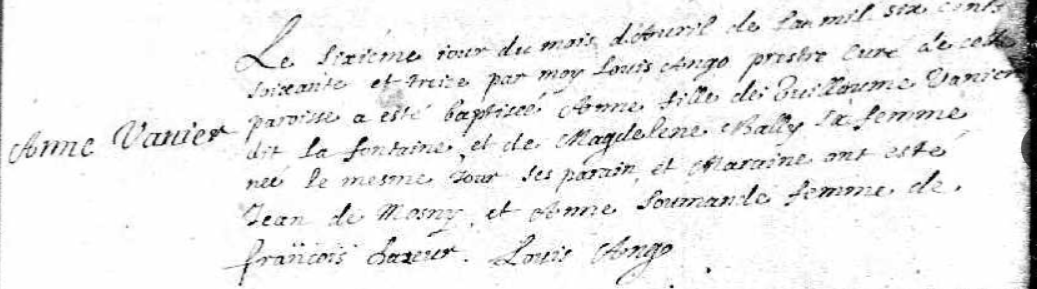 Le sixiéme iour du mois d'Auril de l'an mil six cents
soixante et treize par moy Louis Ango prestre Curé de cette
paroisse a esté baptiseé Anne fille de Guillaume Vanier
Anne Vanier
dit la fontaine, et de Magdelene Bally sa femme
neé le mesme Jour ses parain, et Maraine ont esté
Jean de Mosny, et Anne Soumande femme de
françois hazeur. Louis Ango